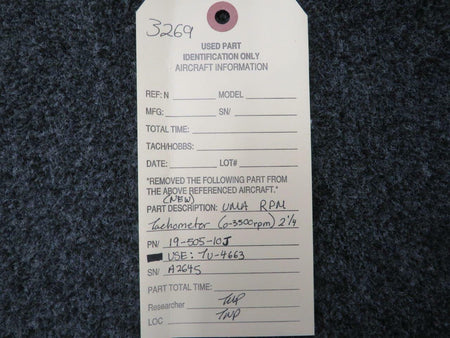 3269
USED PART
IDENTIFICATION ONLY
AIRCRAFT INFORMATION
REF: N MODEL
MFG: SN/
TOTAL TIME:
TACH/HOBBS:
DATE: LOT#
"REMOVED THE FOLLOWING PART FROM
THE ABOVE REFERENCED AIRCRAFT."
(NEW)
PART DESCRIPTION: UMA RPM
Tachometer (0-3500rpm) 2 1/4
PN/ 19-505-10J
USE: TU-4663
SN/ A2645
PART TOTAL TIME:
Researcher TNP
LOC TNP